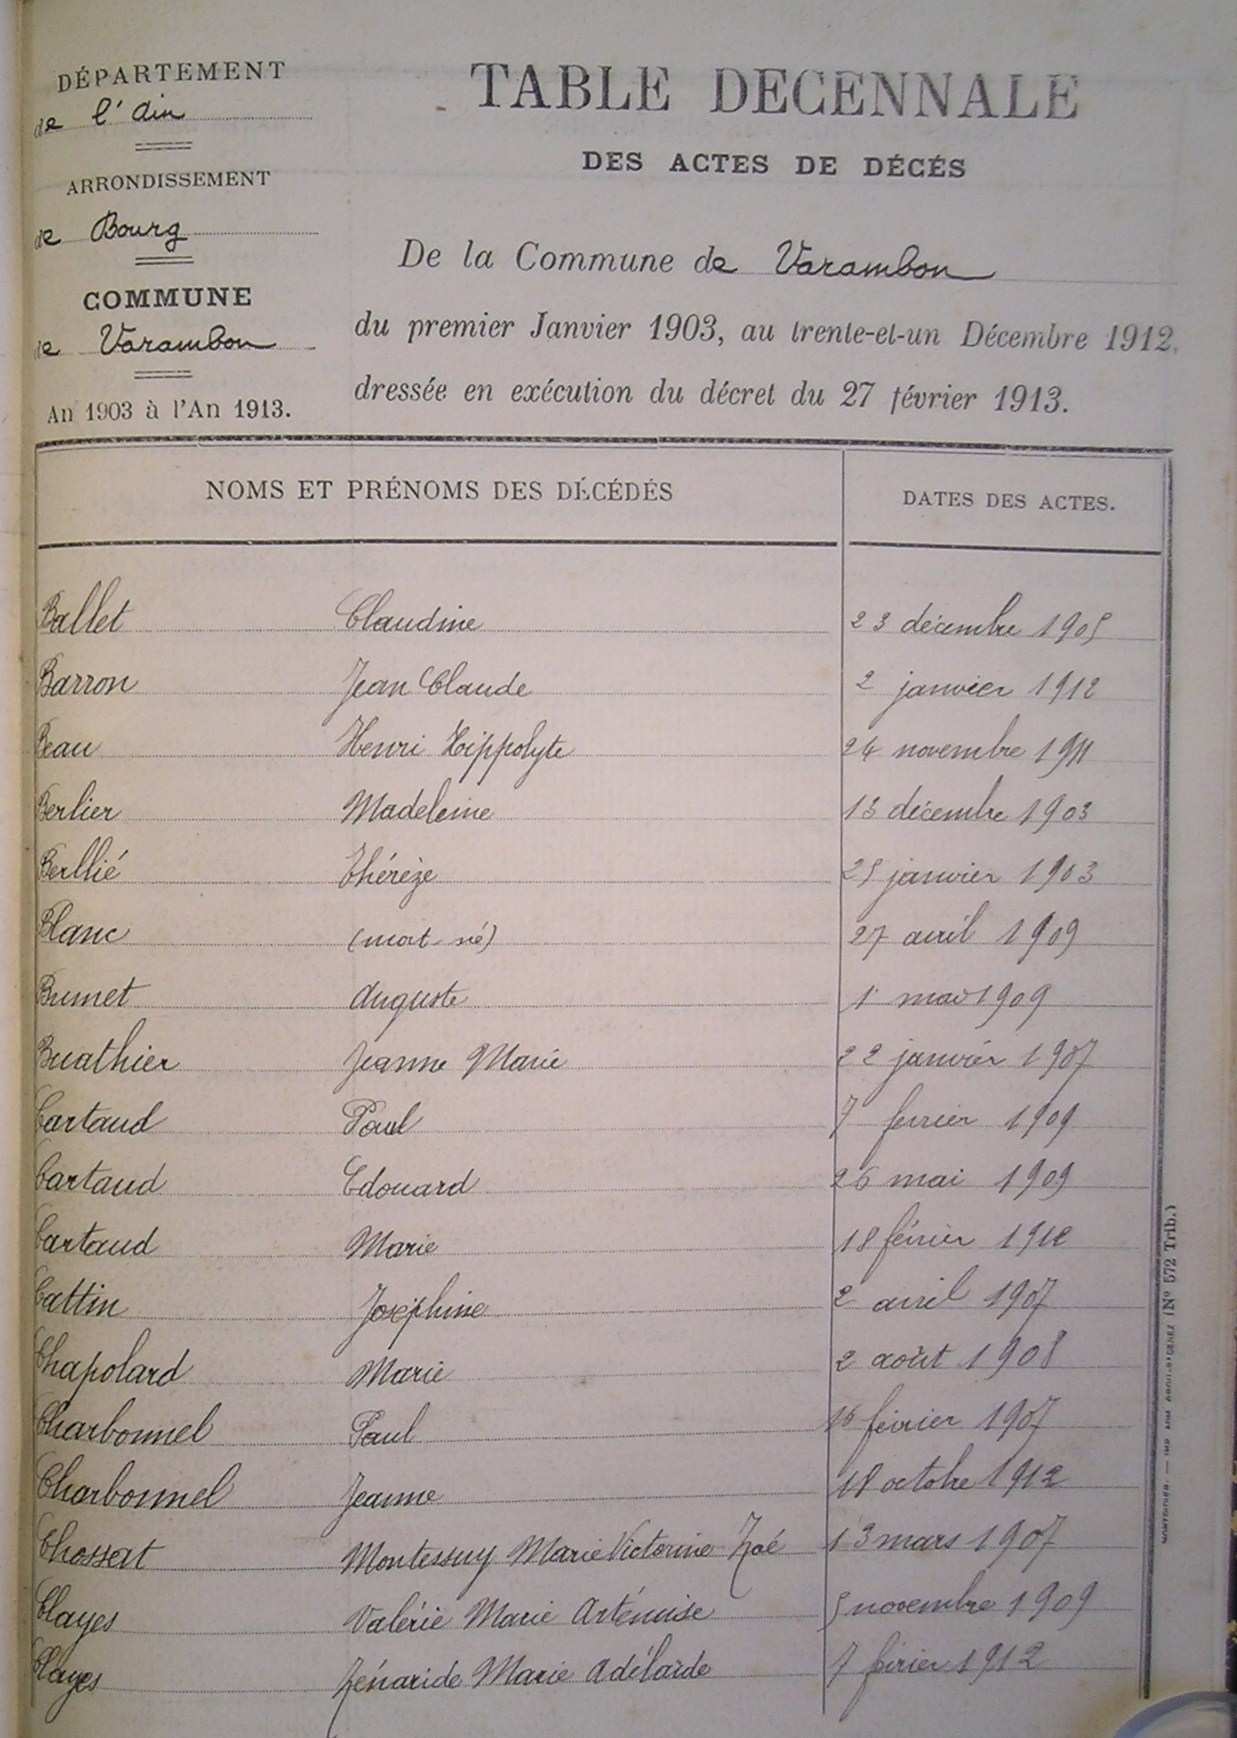 DÉPARTEMENT
de l'Ain
ARRONDISSEMENT
de Bourg
COMMUNE
de Varambon
An 1903 à l'An 1913.
TABLE DECENNALE
DES ACTES DE DÉCÉS
De la Commune de Varambon
du premier Janvier 1903, au trente-et-un Décembre 1912,
dressée en exécution du décret du 27 février 1913.
NOMS ET PRÉNOMS DES DÉCÉDÉS DATES DES ACTES.
Ballet Claudine 23 décembre 1905
Barron Jean Claude 2 janvier 1912
Beau Henri Hippolyte 24 novembre 1911
Berlier Madeleine 13 décembre 1903
Berllié Thérèze 25 janvier 1903
Blanc (mort-né) 27 avril 1909
Brunet Auguste 1 1909
Buathier Jeanne Marie 22 janvier 1907
Cartaud Paul 7 fevrier 1909
Cartaud Edouard 26 mai 1909
Cartaud Marie 18 février 1912
Cattin Joséphine 2 avril 1907
Chapolard Marie 2 août 1908
Charbonnel Paul 16 février 1907
Charbonnel Jeanne 18 octobre 1912
Chossat Montessuy Marie Victorine Zoé 13 mars 1907
Clayes Valérie Marie Artémise 5 novembre 1909
Clayes Zénaride Marie Adélaïde 7 février 1912
(Nº 572 Trib.)